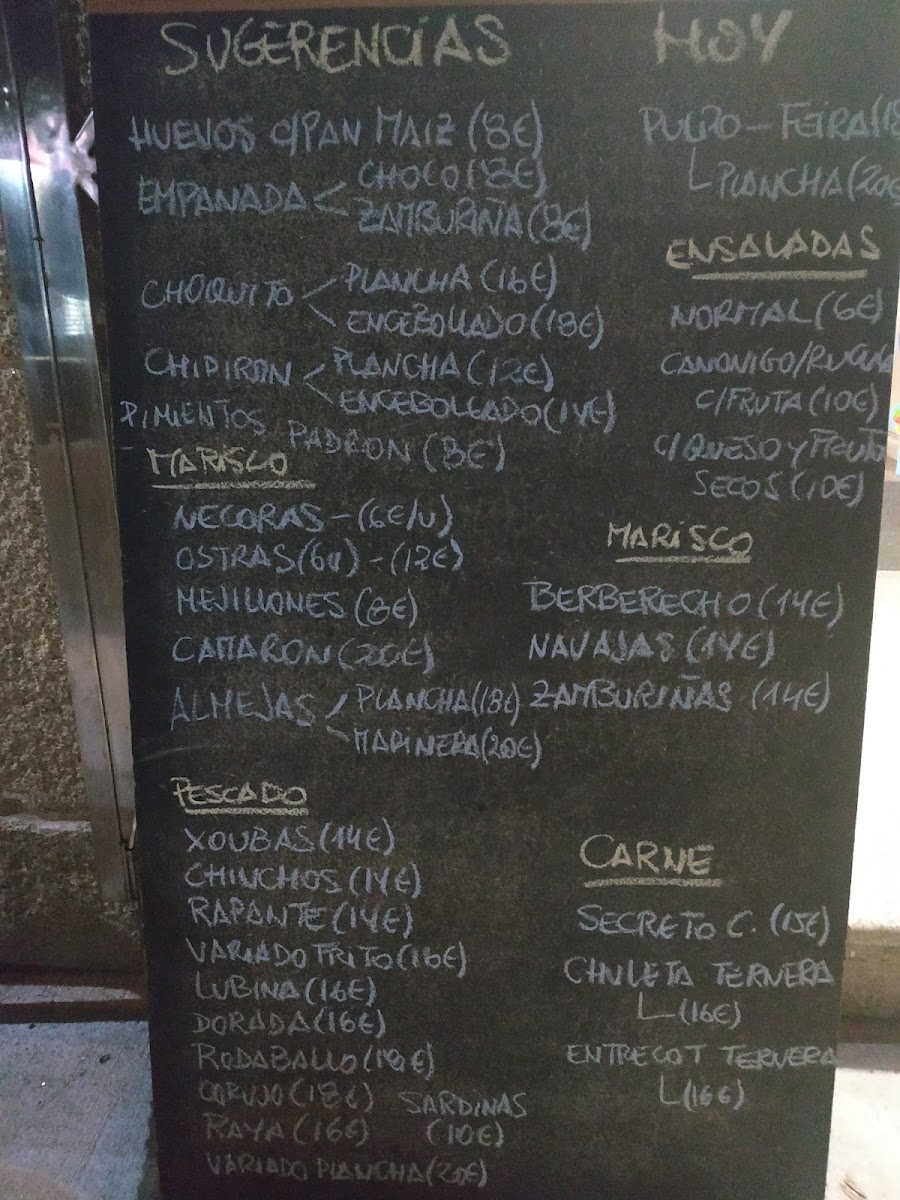 SUGERENCIAS HOY
HUEVOS C/PAN MAIZ (8€)
EMPANADA < CHOCO (8€)
ZAMBURIÑA (8€)
CHOQUITO < PLANCHA (16€)
ENCEBOLLADO (18€)
CHIPIRON < PLANCHA (12€)
ENCEBOLLADO (14€)
PIMIENTOS PADRON (8€)
MARISCO
NECORAS - (6€/U)
OSTRAS (6U) - (12€)
MEJILLONES (8€)
CAMARON (20€)
ALMEJAS < PLANCHA (18€)
MARINERA (20€)
PESCADO
XOUBAS (14€)
CHINCHOS (14€)
RAPANTE (14€)
VARIADO FRITO (16€)
LUBINA (16€)
DORADA (16€)
RODABALLO (18€)
CORUJO (18€)
RAYA (16€)
VARIADO PLANCHA (20€)
SARDINAS
(10€)
PULPO - FEIRA (18
PLANCHA (20€
ENSALADAS
NORMAL (6€)
CANONIGO/RUCULA
C/FRUTA (10€)
C/QUESO Y FRUTO
SECOS (10€)
MARISCO
BERBERECHO (14€)
NAVAJAS (14€)
ZAMBURIÑAS (14€)
CARNE
SECRETO C. (15€)
CHULETA TERNERA
(16€)
ENTRECOT TERNERA
(16€)